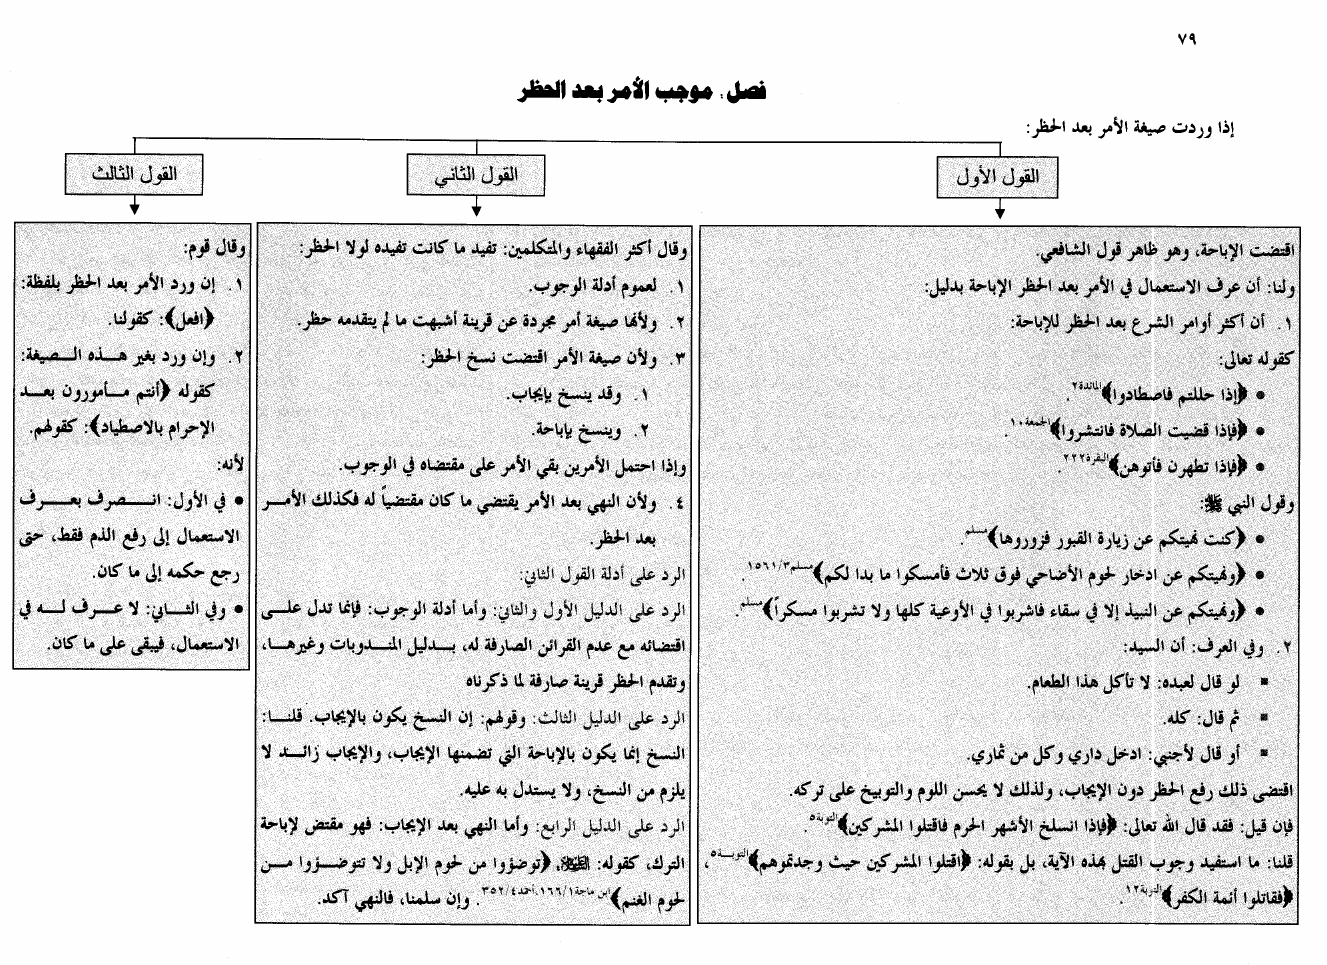 ٧٩
فصل: موجب الأمر بعد الحظر
إذا وردت صيغة الأمر بعد الحظر:
القول الأول
اقتضت الإباحة، وهو ظاهر قول الشافعي.
ولنا: أن عرف الاستعمال في الأمر بعد الحظر الإباحة بدليل:
١. أن أكثر أوامر الشرع بعد الحظر للإباحة:
كقوله تعالى:
• ﴿إذا حللتم فاصطادوا﴾المائدة٢.
• ﴿فإذا قضيت الصلاة فانتشروا﴾الجمعة١٠.
• ﴿فإذا تطهرن فأتوهن﴾البقرة٢٢٢.
وقول النبي ﷺ:
• ﴿كنت نهيتكم عن زيارة القبور فزوروها﴾مسلم.
• ﴿ونهيتكم عن ادخار لحوم الأضاحي فوق ثلاث فأمسكوا ما بدا لكم﴾مسلم١٥٦١/٣.
• ﴿ونهيتكم عن النبيذ إلا في سقاء فاشربوا في الأوعية كلها ولا تشربوا مسكراً﴾مسلم.
٢. وفي العرف: أن السيد:
▪ لو قال لعبده: لا تأكل هذا الطعام.
▪ ثم قال: كله.
▪ أو قال لأجنبي: ادخل داري وكل من ثماري.
اقتضى ذلك رفع الحظر دون الإيجاب، ولذلك لا يحسن اللوم والتوبيخ على تركه.
فإن قيل: فقد قال الله تعالى: ﴿فإذا انسلخ الأشهر الحرم فاقتلوا المشركين﴾التوبة٥.
قلنا: ما استفيد وجوب القتل بهذه الآية، بل بقوله: ﴿اقتلوا المشركين حيث وجدتموهم﴾التوبة٥،
﴿فقاتلوا أئمة الكفر﴾التوبة١٢.
القول الثاني
وقال أكثر الفقهاء والمتكلمين: تفيد ما كانت تفيده لولا الحظر:
١. لعموم أدلة الوجوب.
٢. ولأنها صيغة أمر مجردة عن قرينة أشبهت ما لم يتقدمه حظر.
٣. ولأن صيغة الأمر اقتضت نسخ الحظر:
١. وقد ينسخ بإيجاب.
٢. وينسخ بإباحة.
وإذا احتمل الأمرين بقي الأمر على مقتضاه في الوجوب.
٤. ولأن النهي بعد الأمر يقتضي ما كان مقتضياً له فكذلك الأمر
بعد الحظر.
الرد على أدلة القول الثاني:
الرد على الدليل الأول والثاني: وأما أدلة الوجوب: فإنما تدل على
اقتضائه مع عدم القرائن الصارفة له، بدليل المندوبات وغيرها،
وتقدم الحظر قرينة صارفة لما ذكرناه
الرد على الدليل الثالث: وقولهم: إن النسخ يكون بالإيجاب. قلنا:
النسخ إنما يكون بالإباحة التي تضمنها الإيجاب، والإيجاب زائد لا
يلزم من النسخ، ولا يستدل به عليه.
الرد على الدليل الرابع: وأما النهي بعد الإيجاب: فهو مقتض لإباحة
الترك، كقوله: ﴿توضؤوا من لحوم الإبل ولا تتوضؤوا من
لحوم الغنم﴾ابن ماجة١٦٦/١،أحمد٣٥٢/٤. وإن سلمنا، فالنهي آكد.
القول الثالث
وقال قوم:
١. إن ورد الأمر بعد الحظر بلفظة:
﴿افعل﴾: كقولنا.
٢. وإن ورد بغير هذه الصيغة:
كقوله ﴿أنتم مأمورون بعد
الإحرام بالاصطياد﴾: كقولهم.
لأنه:
• في الأول: انصرف بعرف
الاستعمال إلى رفع الذم فقط، حتى
رجع حكمه إلى ما كان.
• وفي الثاني: لا عرف له في
الاستعمال، فيبقى على ما كان.